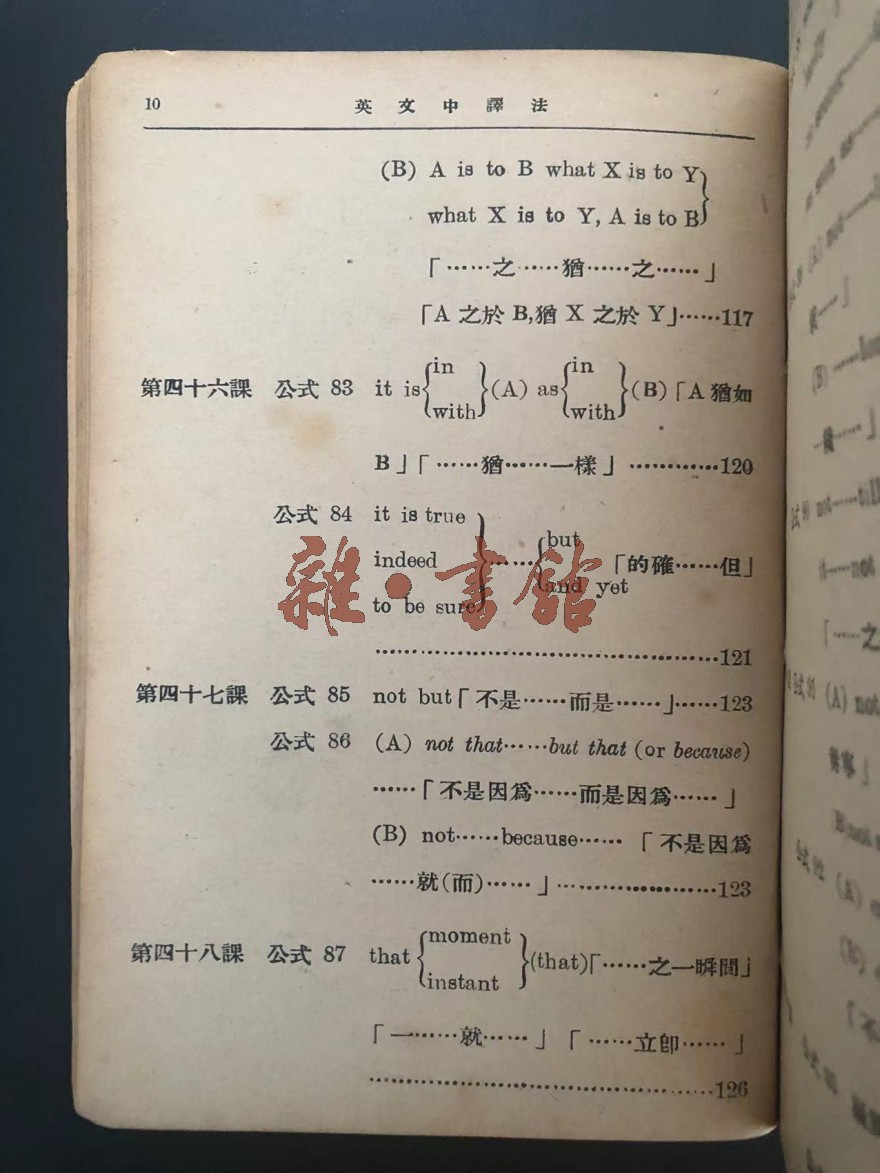 10 英文中譯法
(B) A is to B what X is to Y
what X is to Y, A is to B
「……之……猶……之……」
「A 之於 B,猶 X 之於 Y」……117
第四十六課 公式 83 it is{in with}(A) as{in with}(B)「A 猶如
B」「……猶……一樣」…………120
公式 84 it is true
indeed ……{but 「的確……但」
to be sure and yet
……………………………………121
第四十七課 公式 85 not but「不是……而是……」……123
公式 86 (A) not that……but that (or because)
……「不是因爲……而是因爲……」
(B) not……because……「不是因爲
……就(而)……」………………123
第四十八課 公式 87 that{moment instant}(that)「……之一瞬間」
「一……就……」「……立卽……」
……………………………………126
雜·書館